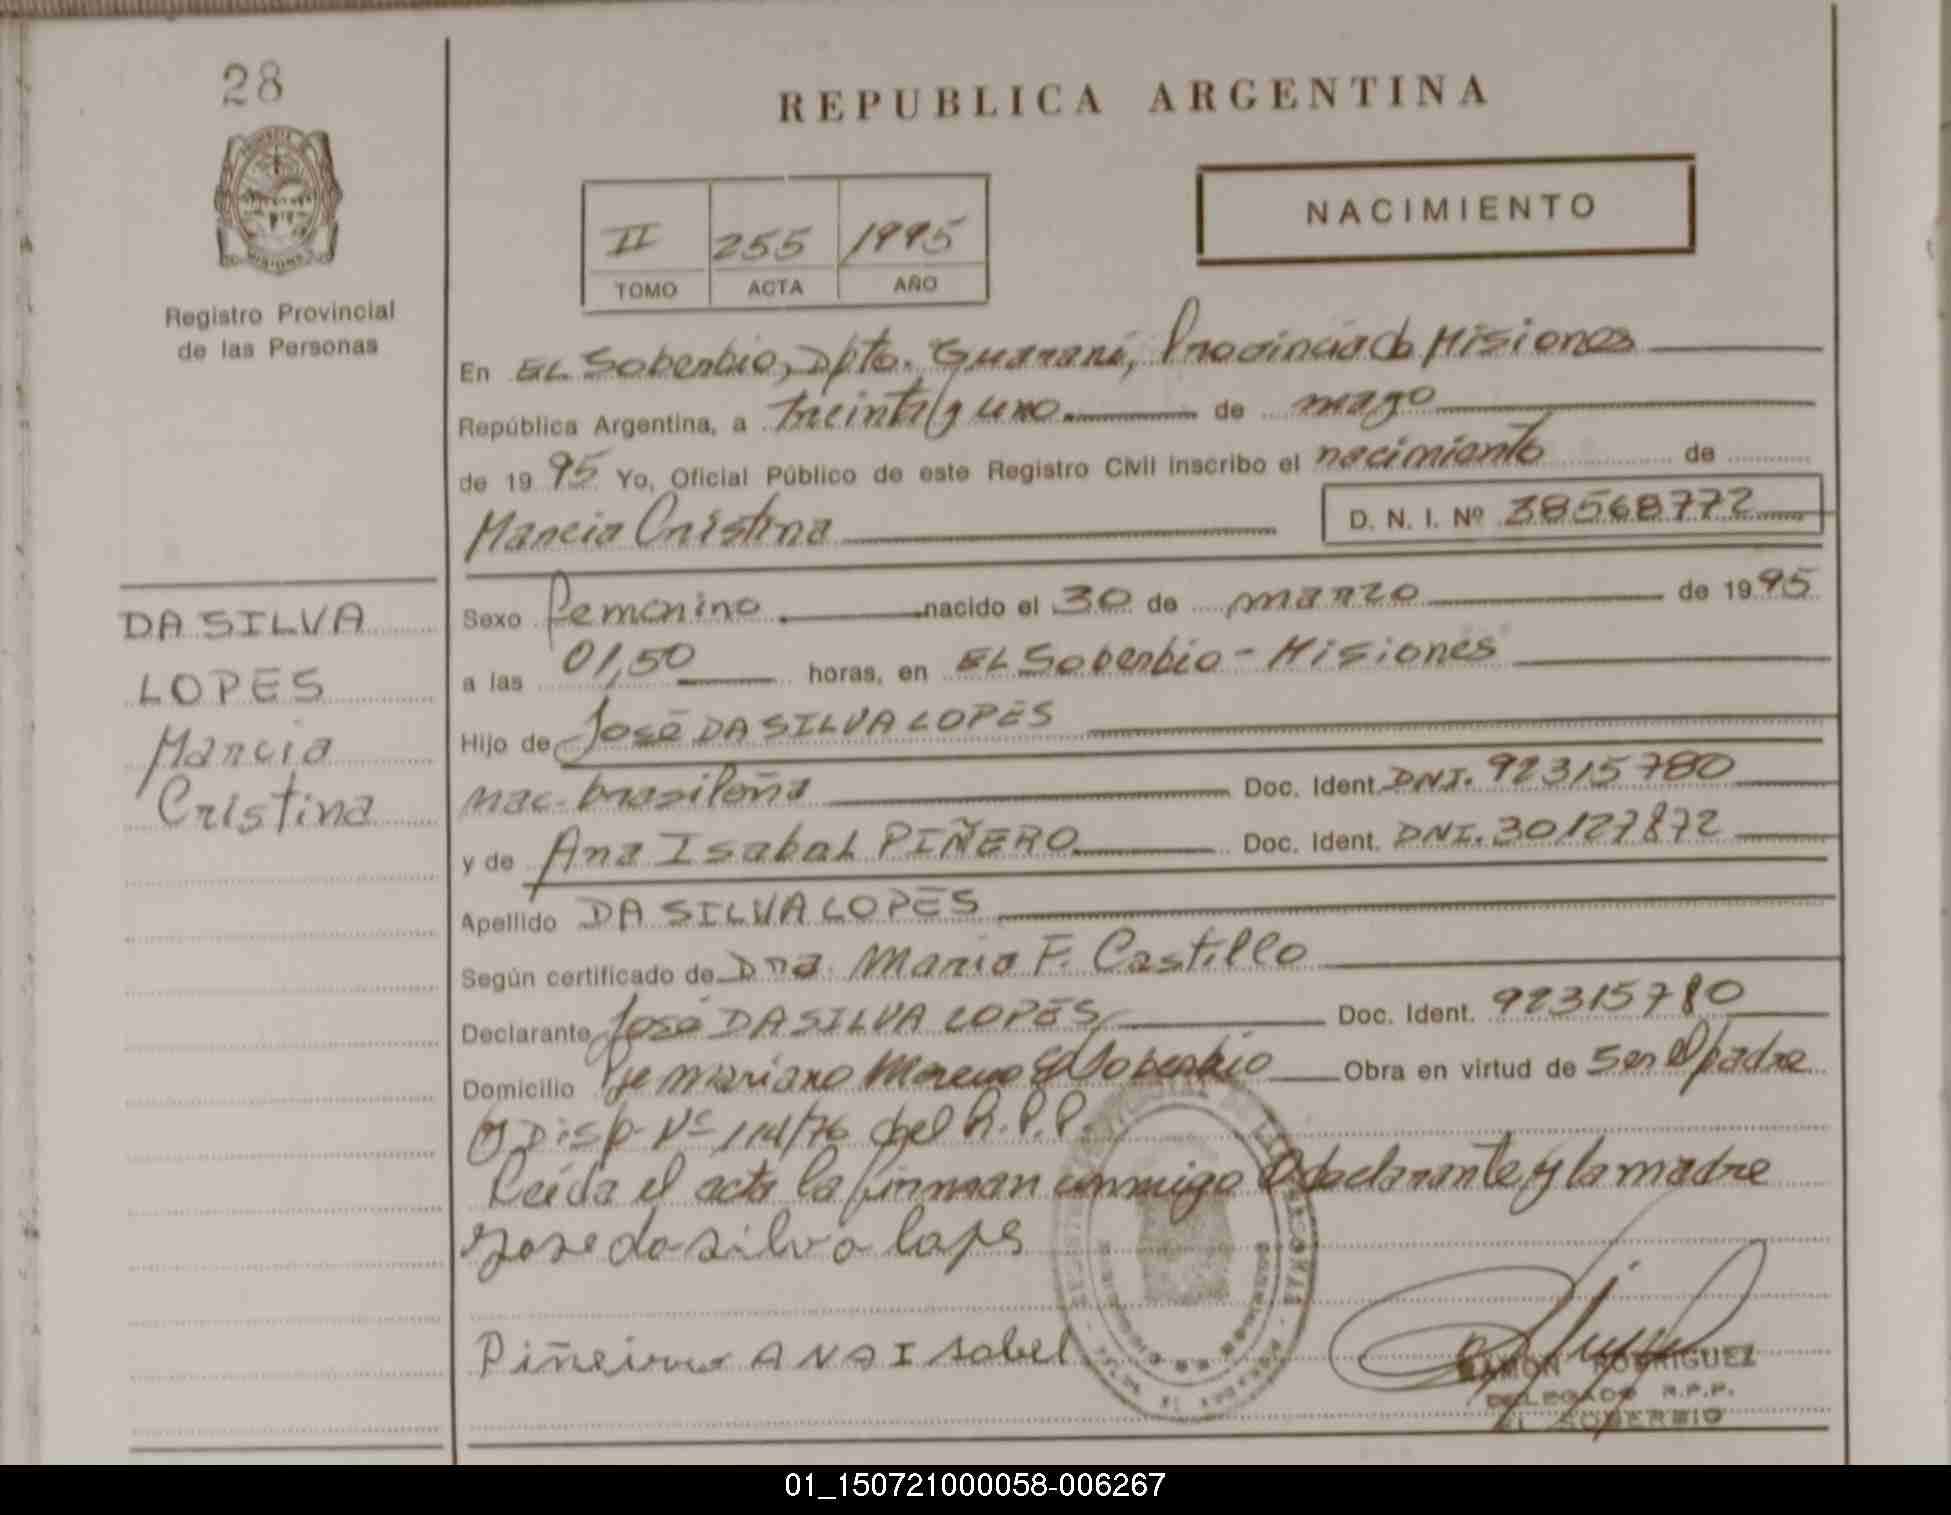 28
REPUBLICA ARGENTINA
NACIMIENTO
II 255 1995
TOMO ACTA AÑO
Registro Provincial
de las Personas
En EL Soberbio, Dpto. Guaraní, Provincia de Misiones
República Argentina, a treinta y uno de mayo
de 1995 Yo, Oficial Público de este Registro Civil inscribo el nacimiento de
Marcia Cristina D. N. I. Nº 38568772
DA SILVA
LOPES
Marcia
Cristina
Sexo femenino nacido el 30 de marzo de 1995
a las 01,50 horas, en EL Soberbio - Misiones
Hijo de José DA SILVA LOPES
nac. brasileña Doc. Ident. DNI. 92315780
y de Ana Isabel PIÑERO Doc. Ident. DNI. 30127872
Apellido DA SILVA LOPES
Según certificado de Dra. Maria F. Castillo
Declarante José DA SILVA LOPES Doc. Ident. 92315780
Domicilio Pje Mariano Moreno El Soberbio Obra en virtud de ser el padre
y Disp. Nº 114/76 del R.P.P.
Leída el acta la firman conmigo el declarante y la madre
Jose da silva lopes
Piñeiro ANA Isabel
RAMON RODRIGUEZ
DELEGADO R.P.P.
EL SOBERBIO
01_150721000058-006267